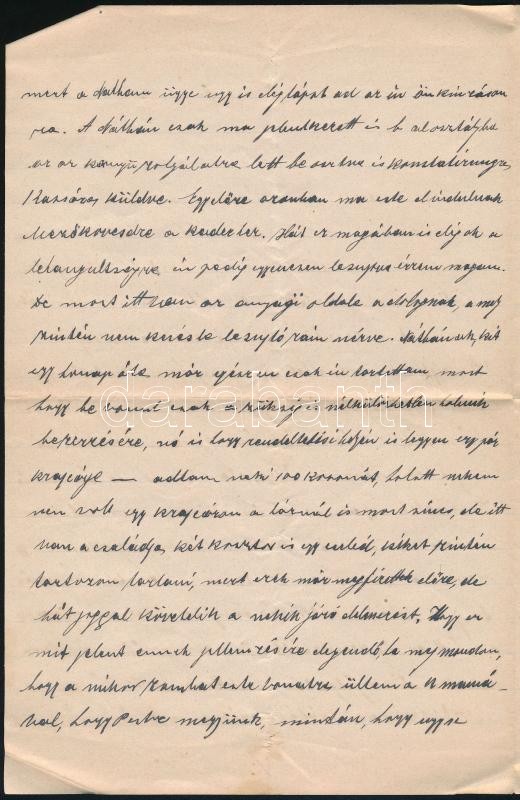 mert a Náthán ügye úgy is elég tápot ad az ön önkínzásom
ra. A Náthán csak ma jelentkezett is b. al osztályba
az az kongú szolgálatra lett be osztva is
Kassára küldve. Egyelőre azonban ma este el indulnak
Mezőkövesdre a kadeter. Hát ez magában is elég ok a
lehangultságra én pedig egyenesen lesujtva érzem magam.
De most itt van az anyagi oldala a dolognak, a mely
szintén nem kevésbé lesujtó rám nézve. Náthánnak, két
egy hónap óta már egészen csak én tartottam, most
hogy be vonul csak a szükség is nélkülözhetlen holmik
be szerzésére, nó is hogy rendelkezési hején is legyen egy pár
krajcárja — adtam neki 100 koronát, holott nekem
nem volt egy krajcárom a tárnál is most sincs, de itt
van a családja két kosztos is egy cseléd, kiket szintén
tartozom tartani, mert ezek már megfizettek előre, de
hát joggal követelik a nekik járó élelmezést. Hogy ez
mit jelent ennek jellemzésére elegendő, ha meg mondom,
hogy a mikor szombat este vonatra ültem a K mamá-
val, hogy Pestre megyünk, mintán, hogy ugyse
darabanth